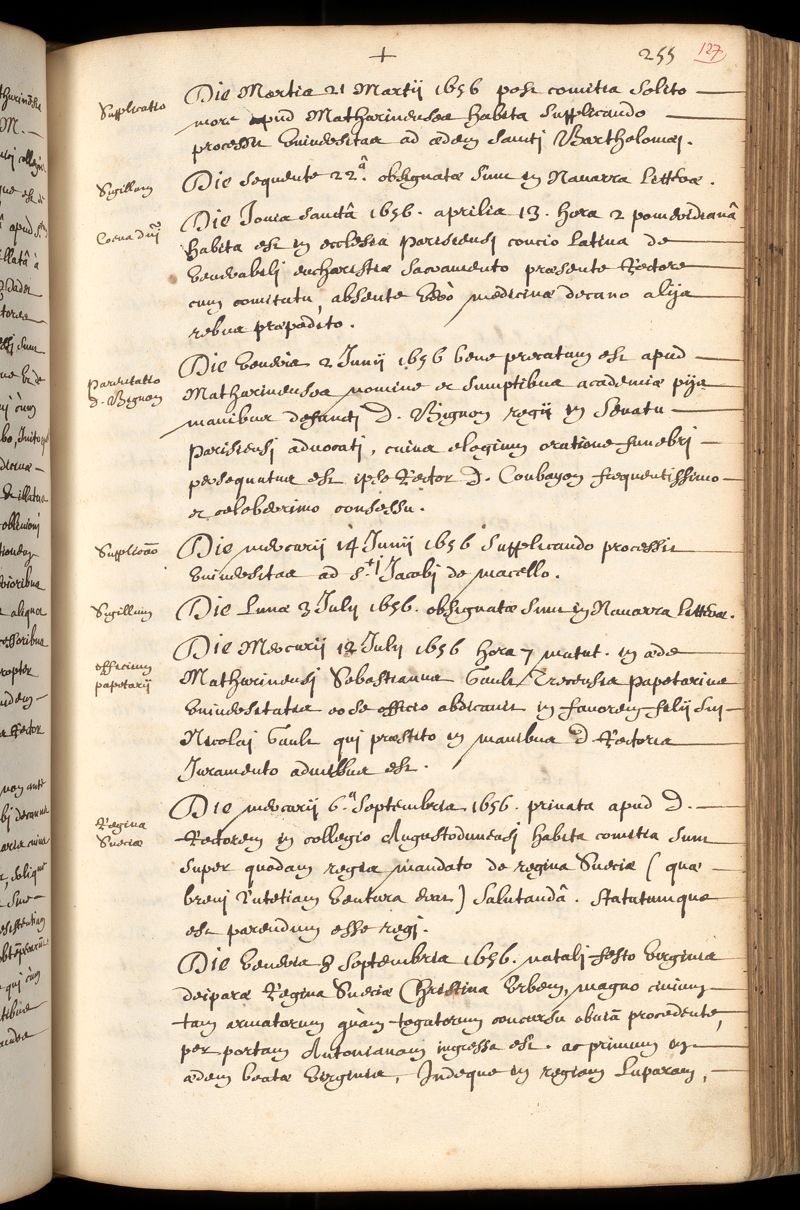 +
255 127
Supplicatio
Die Martis 21 Martij 1656 post comitia solito
more apud Mathurinenses habita supplicando
processit Universitas ad ædem sancti Bartholomæi.
Sigillum
Die sequente 22.ª obsignatæ sunt in Navarra litteræ.
Cœna dñi
Die Jovis sanctâ 1656. aprilis 13. hora 2 pomeridianâ
habita est in ecclesia parisiensi concio latina de
venerabilj eucharistiæ sacramento præsente Rectore
cum comitatu, absente verò medicinæ decano alijs
rebus præpedito.
Parentatio
D. Bignon
Die veneris 2 Junij 1656 bene precatum est apud
Mathurinenses nomine et sumptibus academiæ pijs
manibus defuncti D. Bignon regij in Senatu
parisiensj advocati, cuius elogium oratione funebri
persequutus est ipse Rector D. Courayon frequentissimo
et celeberrimo consessu.
Supplicāo
Die mercurij 14 Junij 1656 supplicando processit
Universitas ad S.ti Jacobj de macello.
Sigillum
Die Lunæ 3 July 1656. obsignatæ sunt in Navarra litteræ.
officium
papetarij
Die Mercurij 12 July 1656 hora 7 matut. in æde
Mathurinensj Sebastianus Gault Trecensis papetarius
Universitatis eo se officio abdicavit in favorem filij sui
Nicolaj Gault qui præstito in manibus D Rectoris
Juramento admissus est.
Regina
Sueciæ
Die mercurij 6.ª Septembris 1656. privata apud D.
Rectorem in collegio Augustodunensj habita comitia sunt
super quodam regis mandato de regina Sueciæ ( quæ
brevi Lutetiam ventura erat ) salutandâ. Statutumque
est parendum esse regj.
Die veneris 8 Septembris 1656. natalj festo virginis
deiparæ Regina Sueciæ Christina Urbem, magno civium
tam armatorum quàm togatorum concursu obviā procedente,
per portam Antonianam ingressa est. ac primum in
ædem beatæ virginis, Indeque in regiam Luparam,